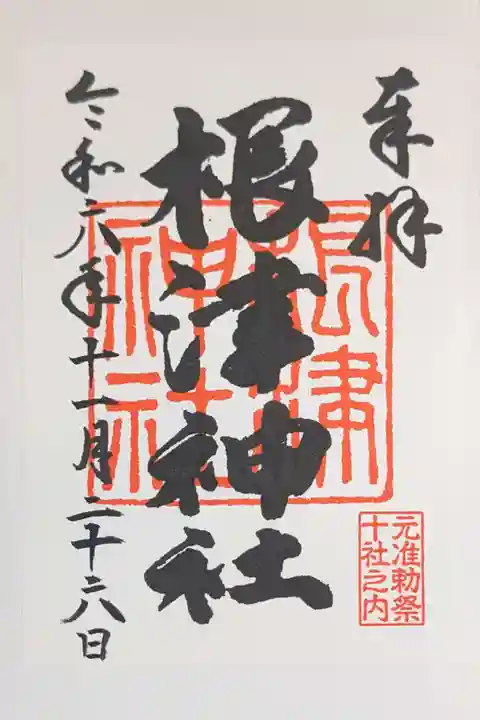 奉拝
元准勅祭
十社之内
根津神社
根津
神社
令和六年十一月二十六日